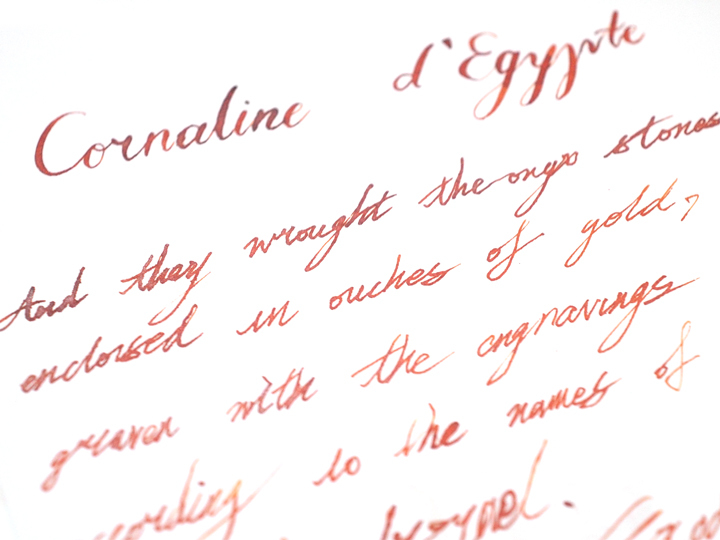 Cornaline d'Egypte
And they wrought the onyx stones
enclosed in ouches of gold,
graven with the engravings
to the names of